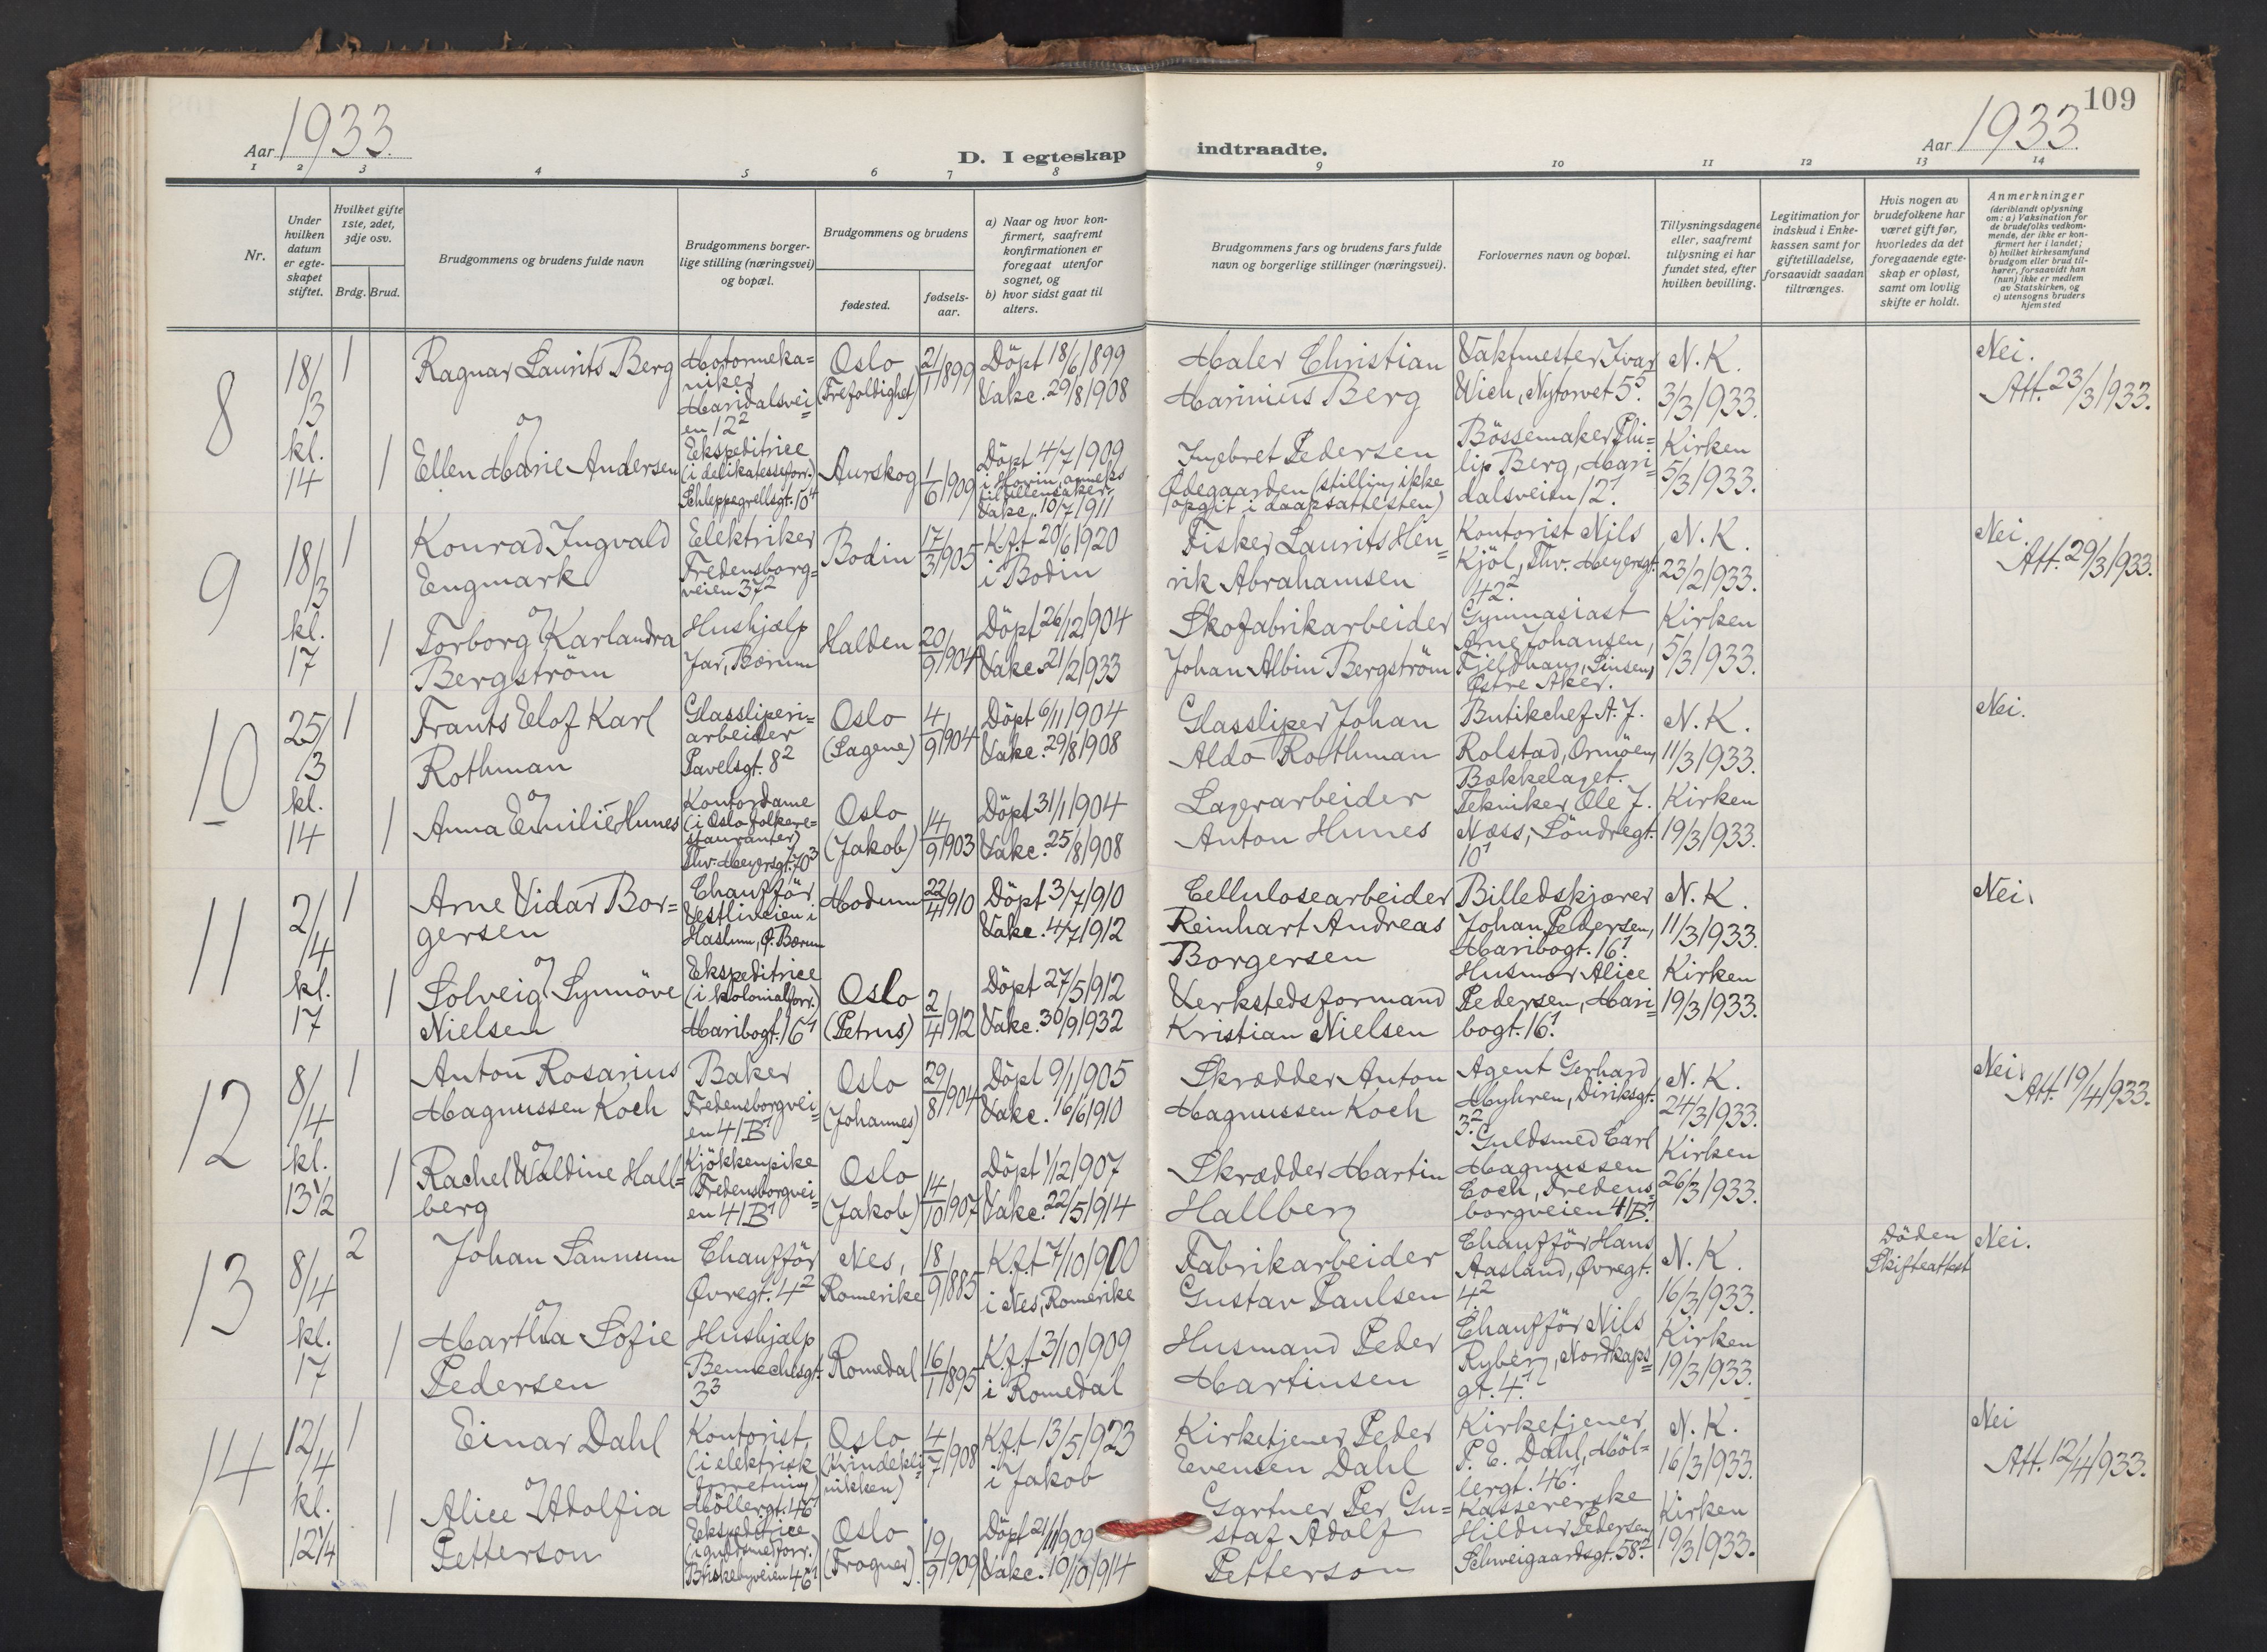 109
Aar 1933.
D. I egteskap
indtraadte.
Aar 1933.
1 2 3 4 5 6 7 8 9 10 11 12 13 14
Nr.
Under
hvilken
datum
er egte-
skapet
stiftet.
Hvilket gifte
1ste, 2det,
3dje osv.
Brdg. Brud.
Brudgommens og brudens fulde navn
Brudgommens borger-
lige stilling (næringsvei)
og bopæl.
Brudgommens og brudens
fødested.
fødsels-
aar.
a) Naar og hvor kon-
firmert, saafremt
konfirmationen er
foregaat utenfor
sognet, og
b) hvor sidst gaat til
alters.
Brudgommens fars og brudens fars fulde
navn og borgerlige stillinger (næringsvei).
Forlovernes navn og bopæl.
Tillysningsdagene
eller, saafremt
tillysning ei har
fundet sted, efter
hvilken bevilling.
Legitimation for
indskud i Enke-
kassen samt for
giftetilladelse,
forsaavidt saadan
tiltrænges.
Hvis nogen av
brudefolkene har
været gift før,
hvorledes da det
foregaaende egte-
skap er opløst,
samt om lovlig
skifte er holdt.
Anmerkninger
(deriblandt oplysning
om: a) Vaksination for
de brudefolks vedkom-
mende, der ikke er kon-
firmert her i landet;
b) hvilket kirkesamfund
brudgom eller brud til-
hører, forsaavidt han
(hun) ikke er medlem
av Statskirken, og
c) utensogns bruders
hjemsted
8
18/3
kl.
14
1
Ragnar Laurits Berg
og
Motormeka=
niker
Maridalsvei=
en 12²
Oslo
(Trefoldighet)
21/1 1899
Döpt 18/6 1899
Vakc. 29/8 1908
Maler Christian
Marinius Berg
Vaktmester Ivar
Wich, Nytorvet 5⁵.
N. K.
3/3 1933.
Nei.
Att. 23/3 1933.
1
Ellen Marie Andersen
Ekspeditrice
(i delikatesseforr.)
Schleppegrellsgt. 10⁴
Aurskog
1/6 1909
Döpt 4/7 1909
i Hovin, anneks
til Ullensaker,
Vakc. 10/7 1911
Ingebret Pedersen
Ödegaarden (stilling ikke
opgit i daapsattesten)
Bössemaker Phi=
lip Berg, Mari=
dalsveien 12¹.
Kirken
5/3 1933.
9
18/3
kl.
17
1
Konrad Ingvald
Engmark
og
Elektriker
Fredensborg=
veien 37²
Bodin
17/3 1905
Kft 20/6 1920
i Bodin
Fisker Laurits Hen=
rik Abrahamsen
Kontorist Nils
Kjöl, Thv. Meyersgt.
42².
N. K.
23/2 1933.
Nei.
Att. 29/3 1933.
1
Torborg Karlandra
Bergström
Hushjælp
Jar, Bærum
Halden
20/9 1904
Döpt 26/12 1904
Vakc. 21/2 1933
Skofabrikarbeider
Johan Albin Bergström
Gymnasiast
Arne Johansen,
Fjeldhaug, Sinsen,
Östre Aker.
Kirken
5/3 1933.
10
25/3
kl.
14
1
Frants Elof Karl
Rothman
og
Glassliperi=
arbeider
Pavelsgt. 8²
Oslo
(Sagene)
4/9 1904
Döpt 6/11 1904
Vakc. 29/8 1908
Glassliper Johan
Aldo Rothman
Butikchef A. J.
Rolstad, Ormöen,
Bækkelaget.
N. K.
11/3 1933.
Nei.
1
Anna Emilie Hunes
Kontordame
(i Oslo folkere=
stauranter)
Thv. Meyersgt. 70³
Oslo
(Jakob)
14/9 1903
Döpt 31/1 1904
Vakc. 25/8 1908
Lagerarbeider
Anton Hunes
Tekniker Ole J.
Næss, Söndregt.
10¹
Kirken
19/3 1933.
11
2/4
kl.
17
1
Arne Vidar Bor=
gersen
og
Chaufför
Vestliveien i
Haslum, Ö. Bærum
Modum
22/4 1910
Döpt 3/7 1910
Vakc. 4/7 1912
Cellulosearbeider
Reinhart Andreas
Borgersen
Billedskjærer
Johan Pedersen,
Maribogt. 16¹.
N. K.
11/3 1933.
Nei.
1
Solveig Synnöve
Nielsen
Ekspeditrice
(i kolonialforr.)
Maribogt. 16¹
Oslo
(Petrus)
2/4 1912
Döpt 27/5 1912
Vakc. 30/9 1932
Verkstedsformand
Kristian Nielsen
Husmor Alice
Pedersen, Mari=
bogt. 16¹.
Kirken
19/3 1933.
12
8/4
kl.
13½
1
Anton Rosarius
Magnussen Koch
og
Baker
Fredensborgvei=
en 41B¹
Oslo
(Johannes)
29/8 1904
Döpt 9/1 1905
Vakc. 16/6 1910
Skrædder Anton
Magnussen Koch
Agent Gerhard
Myhren, Diriksgt.
3².
N. K.
24/3 1933.
Nei.
Att. 19/4 1933.
1
Rachel Valdine Hall=
berg
Kjökkenpike
Fredensborgvei=
en 41B¹
Oslo
(Jakob)
14/10 1907
Döpt 1/12 1907
Vakc. 22/5 1914
Skrædder Martin
Hallberg
Guldsmed Carl
Magnussen
Koch, Fredens=
borgveien 41B¹.
Kirken
26/3 1933.
13
8/4
kl.
17
2
Johan Sannum
og
Chaufför
Övregt. 4²
Nes,
Romerike
18/9 1885
Kft 7/10 1900
i Nes, Romerike
Fabrikarbeider
Gustav Paulsen
Chaufför Hans
Aasland, Övregt.
4²
N. K.
16/3 1933.
Döden
Skifteattest
Nei.
1
Martha Sofie
Pedersen
Hushjælp
Bennechesgt.
3³
Romedal
16/1 1895
Kft 3/10 1909
i Romedal
Husmand Peder
Martinsen
Chaufför Nils
Ryberg, Nordkaps=
gt. 4¹.
Kirken
19/3 1933.
14
12/4
kl.
12¼
1
Einar Dahl
og
Kontorist
(i elektrisk
forretning)
Möllergt. 46¹
Oslo
(Kvindekli=
nikken)
4/7 1908
Kft 13/5 1923
i Jakob
Kirketjener Peder
Evensen Dahl
Kirketjener
P. E. Dahl, Möl=
lergt. 46¹.
N. K.
16/3 1933.
Nei
Att. 12/4 1933.
1
Alice Adolfia
Petterson
Ekspeditrice
(i guldsmedforr.)
Briskebyveien 46¹
Oslo
(Frogner)
19/9 1909
Döpt 21/11 1909
Vakc. 10/10 1914
Gartner Per Gu=
staf Adolf
Petterson
Kassererske
Hildur Pedersen,
Schweigaardsgt. 58².
Kirken
19/3 1933.